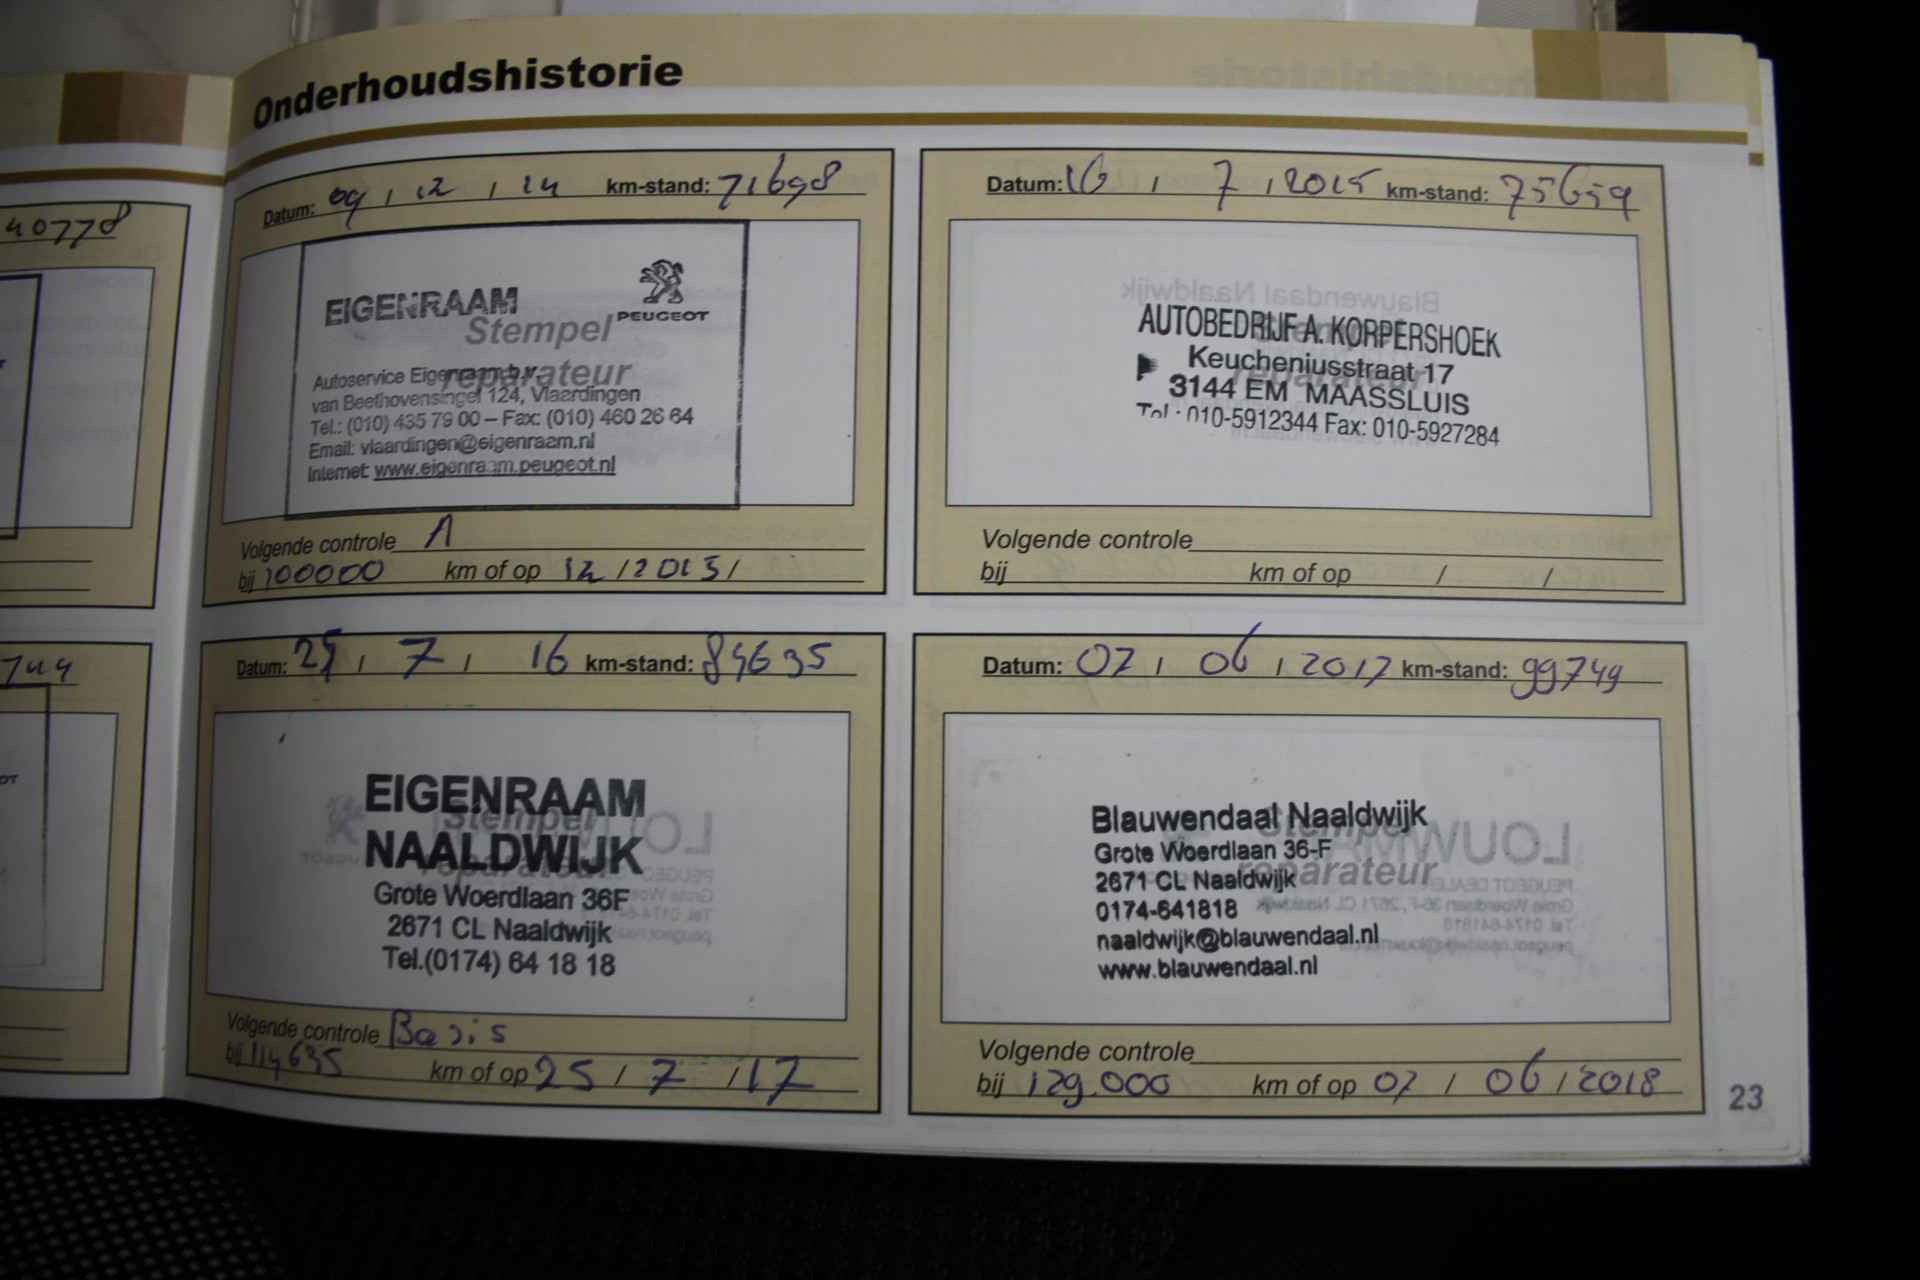 Onderhoudshistorie
40778
744
Datum: 09 / 12 / 14 km-stand: 71698
EIGENRAAM
PEUGEOT
Stempel
reparateur
Autoservice Eigenraam b.v.
van Beethovensingel 124, Vlaardingen
Tel.: (010) 435 79 00 – Fax: (010) 460 26 64
Email: vlaardingen@eigenraam.nl
Internet: www.eigenraam.peugeot.nl
Volgende controle A
bij 100000 km of op 12 / 2015 /
Datum: 16 / 7 / 2015 km-stand: 75659
AUTOBEDRIJF A. KORPERSHOEK
Keucheniusstraat 17
3144 EM MAASSLUIS
Tel.: 010-5912344 Fax: 010-5927284
Volgende controle
bij km of op / /
Datum: 25 / 7 / 16 km-stand: 84635
EIGENRAAM
Stempel
NAALDWIJK
reparateur
Grote Woerdlaan 36F
2671 CL Naaldwijk
Tel.(0174) 64 18 18
Volgende controle Basis
bij 114635 km of op 25 / 7 / 17
Datum: 07 / 06 / 2017 km-stand: 99749
Blauwendaal Naaldwijk
Stempel
Grote Woerdlaan 36-F
reparateur
2671 CL Naaldwijk
0174-641818
naaldwijk@blauwendaal.nl
www.blauwendaal.nl
Volgende controle
bij 129.000 km of op 07 / 06 / 2018
23